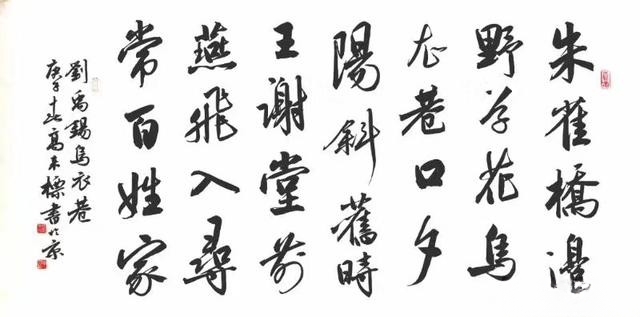 朱雀橋邊
野草花烏
衣巷口夕
陽斜舊時
王謝堂前
燕飛入尋
常百姓家
劉禹錫烏衣巷
庚子高木標書於京